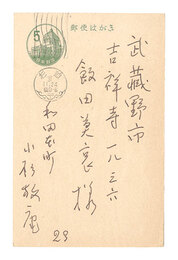 郵便はがき
5
武蔵野市
吉祥寺一八三六
飯田莫哀様
和田本町
小杉放庵
29